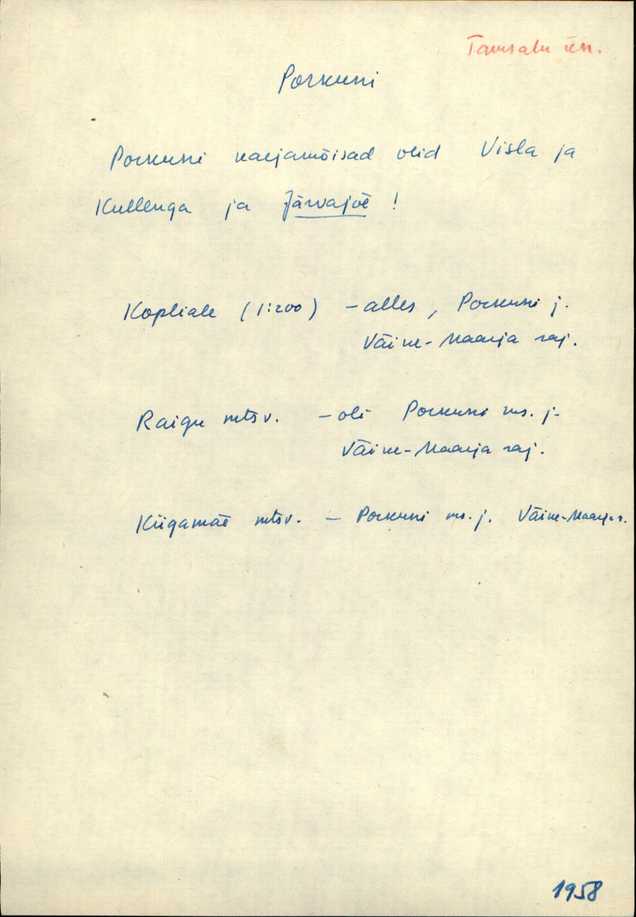 Tamsalu
Porkuni
Porkuni karjamõisad olid Visla ja
Kullenga ja Järvajõe !
Kopliale (1:200) – alles, Porkuni j.
Väike-Maarja raj.
Raigu mtsv. – oli Porkuni ms. j.
Väike-Maarja raj.
Kiigamäe mtsv. – Porkuni ms. j. Väike-Maarja r.
1958